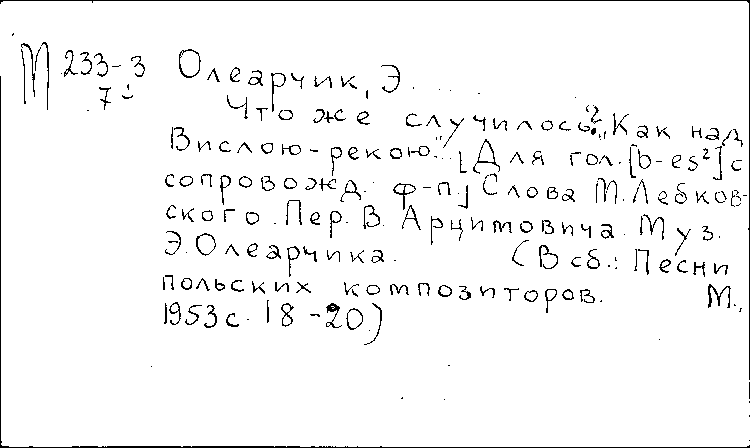 М 233-3 Олеарчик, Э.
7
Что же случилось? "Как над
Вислою-рекою..." [Для гол. [b-es²] с
сопровожд. ф-п.] Слова М. Лебков-
ского. Пер. В. Арцимовича. Муз.
Э. Олеарчика. (В сб.: Песни
польских композиторов. М.,
1953 с. 18-20)